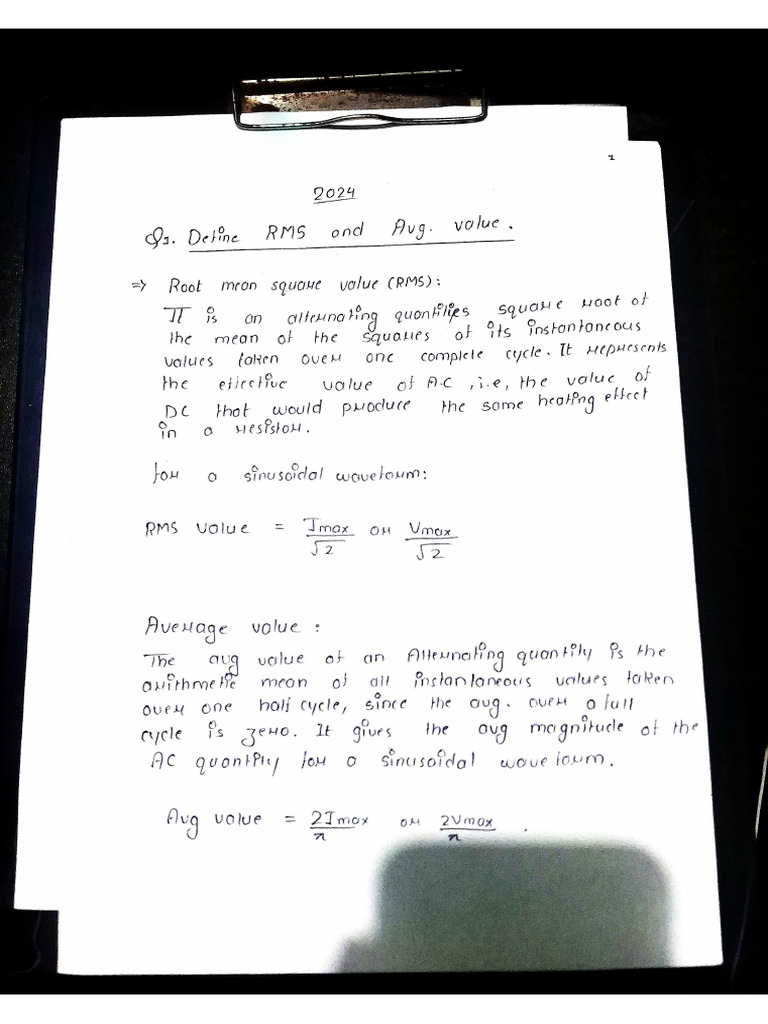 1
2024
Q1. Define RMS and Avg. value.
⇒ Root mean square value (RMS):
It is an alternating quantities square root of
the mean of the squares of its instantaneous
values taken over one complete cycle. It represents
the effective value of A.C, i.e, the value of
DC that would produce the same heating effect
in a resistor.
for a sinusoidal waveform:
RMS value = Imax/√2 or Vmax/√2
Average value:
The avg value of an Alternating quantity is the
arithmetic mean of all instantaneous values taken
over one half cycle, since the avg. over a full
cycle is zero. It gives the avg magnitude of the
AC quantity for a sinusoidal waveform.
Avg value = 2Imax/π or 2Vmax/π.